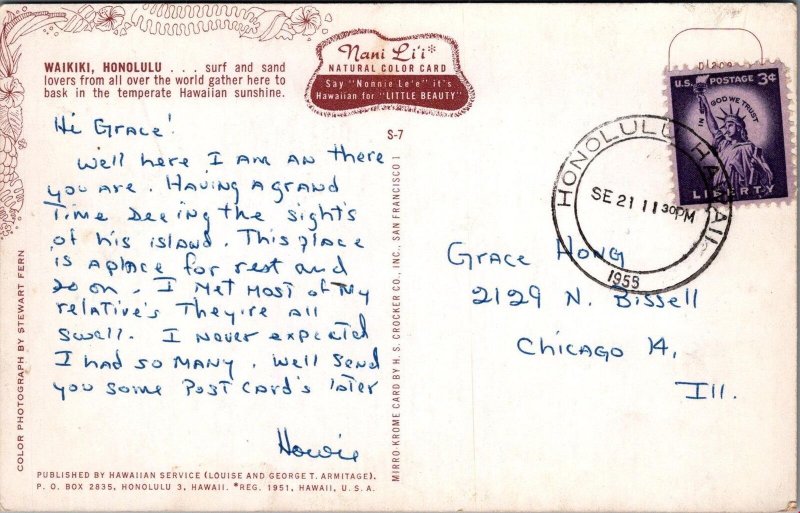 WAIKIKI, HONOLULU . . . surf and sand
lovers from all over the world gather here to
bask in the temperate Hawaiian sunshine.
Nani Li'i*
NATURAL COLOR CARD
Say "Nonnie Le'e" it's
Hawaiian for "LITTLE BEAUTY"
S-7
Hi Grace!
Well here I am an there
you are. Having a grand
Time seeing the sights
of his island. This place
is a place for rest and
so on. I Met most of my
relative's They're all
swell. I never expected
I had so many. Well send
you some Post Card's later
Howie
PUBLISHED BY HAWAIIAN SERVICE (LOUISE AND GEORGE T. ARMITAGE).
P. O. BOX 2835, HONOLULU 3, HAWAII. *REG. 1951, HAWAII, U.S.A.
COLOR PHOTOGRAPH BY STEWART FERN
MIRRO-KROME CARD BY H. S. CROCKER CO., INC., SAN FRANCISCO 1
U.S. POSTAGE 3¢
IN GOD WE TRUST
LIBERTY
HONOLULU HAWAII
SE 21 11 30PM
1958
Grace Hong
2129 N. Bissell
Chicago 14,
Ill.